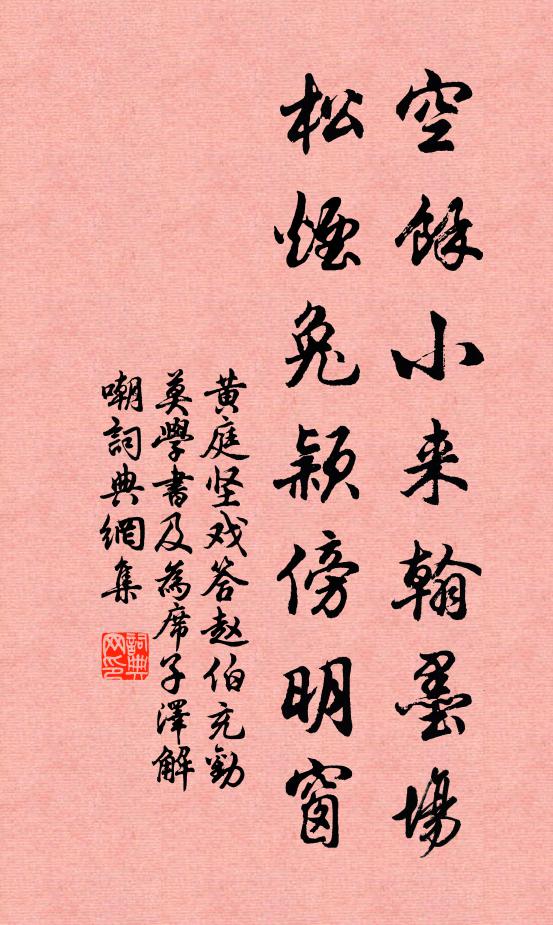 空餘小来翰墨場
松煙兔潁傍明窗
黄庭坚戏答赵伯充勸
莫學書及為席子澤解
嘲詞典網集
詞典网印